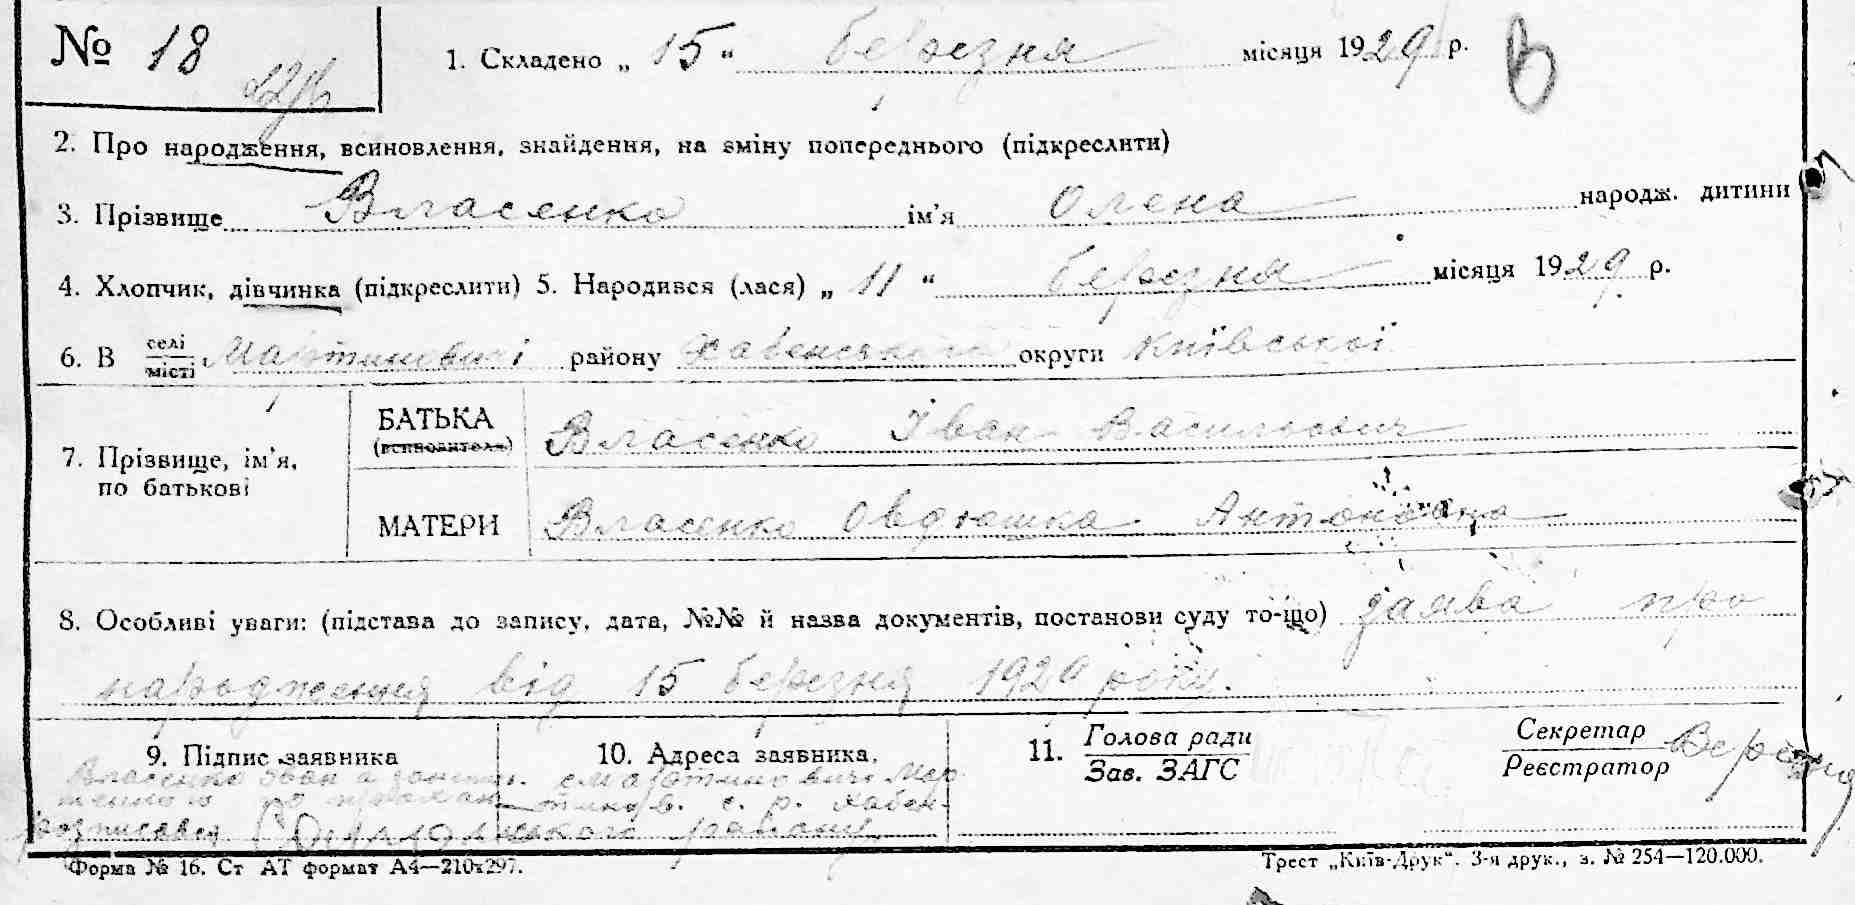 № 18
1. Складено „ 15 “ березня місяця 1929 р. В
2. Про народження, всиновлення, знайдення, на зміну попереднього (підкреслити)
3. Прізвище Власенко ім’я Олена народж. дитини
4. Хлопчик, дівчинка (підкреслити) 5. Народився (лася) „ 11 “ березня місяця 1929 р.
6. В селі/місті Мартиновичі району Хабенського округи Київської
7. Прізвище, ім’я, по батькові
БАТЬКА (всиновителя) Власенко Іван Васильович
МАТЕРИ Власенко Овдюшка Антоновна
8. Особливі уваги: (підстава до запису, дата, №№ й назва документів, постанови суду то-що) заява про
народження від 15 березня 1929 року.
9. Підпис заявника
10. Адреса заявника.
11. Голова ради / Зав. ЗАГС
Секретар / Реєстратор
Власенко Іван а
с. Мартиновичі Мар-
тинов. с. р. Хабен-
розписався
ського району
Форма № 16. Ст АТ формат А4—210х297.
Трест „Київ-Друк“. 3-я друк., з. № 254—120.000.